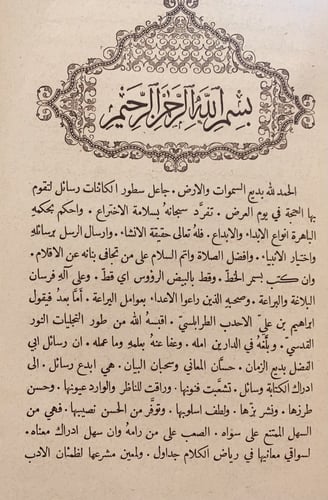 بسم الله الرحمن الرحيم
الحمد لله بديع السموات والارض . جاعل سطور الكائنات رسائل لتقوم
بها الحجة في يوم العرض . تفرّد سبحانه بسلامة الاختراع . واحكم بحكمه
الباهرة انواع الابداء والابداع . فلهُ تعالى حقيقة الانشاء . وارسال الرسل برسائله
واختيار الانبياء . وافضل الصلاة واتم السلام على من تجافى بنانه عن الاقلام .
وان كتب بسمر الخطّ . وقط بالبيض الرؤوس اي قطّ . وعلى آلهِ فرسان
البلاغة والبراعة . وصحبهِ الذين راعوا الاعداء بعوامل اليراعة . أمّا بعدُ فيقول
ابراهيم بن عليّ الاحدب الطرابلسيّ . اقبسهُ الله من طور التجليات النور
القدسيّ . وبلّغهُ في الدارين امله . وعفا عنهُ بعلمهِ وما عمله . ان رسائل ابي
الفضل بديع الزمان . حسّان المعاني وسحبان البيان . هي ابدع رسائل . الى
ادراك الكتابة وسائل . تشعّبت فنونها . وراقت للناظر والوارد عيونها . وحسن
طرزها . ونشر بزّها . ولطف اسلوبها . وتوفّر من الحسن نصيبها . فهي من
السهل الممتنع على سواه . الصعب على من رامهُ وان سهل ادراك معناه .
لسواقي معانيها في رياض الكلام جداول . ولمعين مشرعها لظمئان الادب